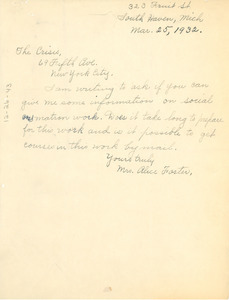 323 Bruit St.
South Haven, Mich
Mar. 25, 1932.
The Crisis,
69 Fifth Ave.
New York City.
I am writing to ask if you can
give me some information on social
work. Does it take long to prepare
for this work and is it possible to get
courses in this work by mail.
Yours truly
Mrs. Alice Foster.